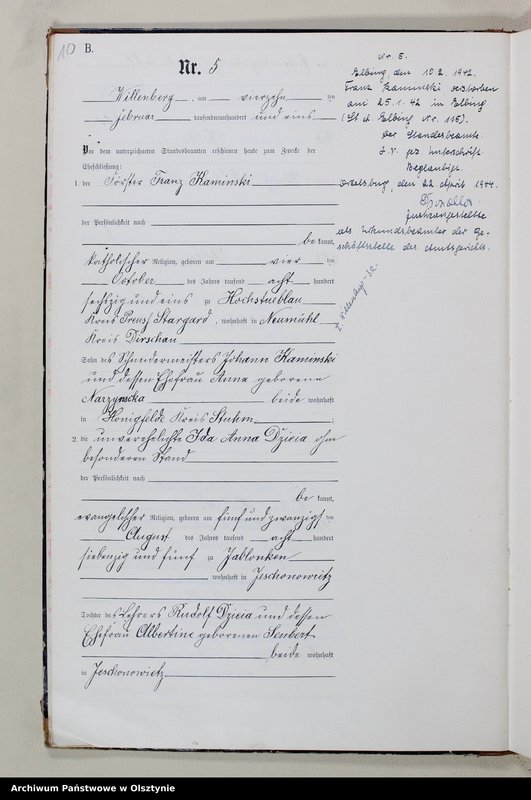 10 B.
Nr. 5
Willenberg, am vierzehn ten
Februar tausendneunhundert und eins
Vor dem unterzeichneten Standesbeamten erschienen heute zum Zwecke der
Eheschließung:
1. der Förster Franz Kaminski
der Persönlichkeit nach
be kannt,
katholischer Religion, geboren am vier ten
October des Jahres tausend acht hundert
sechzig und eins zu Hochstueblau
Kreis Preuss Stargard, wohnhaft in Neumühl
Kreis Dirschau
Sohn des Schneidermeisters Johann Kaminski
und dessen Ehefrau Anna geborene
Narzynska beide wohnhaft
in Honigfelde Kreis Stuhm;
2. die unverehelichte Ida Anna Dzieia ohne
besonderen Stand
der Persönlichkeit nach
be kannt,
evangelischer Religion, geboren am fünf und zwanzigs ten
August des Jahres tausend acht hundert
siebenzig und fünf zu Jablonken
, wohnhaft in Jeschonowietz
Tochter des Lehrers Rudolf Dzieia und dessen
Ehefrau Albertine geborenen Seubert
beide wohnhaft
in Jeschonowietz
Nr. 5.
Elbing, den 10.2.1942.
Franz Kaminski verstorben
am 25.1.42 in Elbing
(St. A. Elbing Nr. 115).
Der Standesbeamte
J. V. gez. Unterschrift.
Beglaubigt.
Ortelsburg, den 22. April 1944.
Justizangestellte
als Urkundsbeamter der Ge-
schäftsstelle des Amtsgerichts.
Archiwum Państwowe w Olsztynie